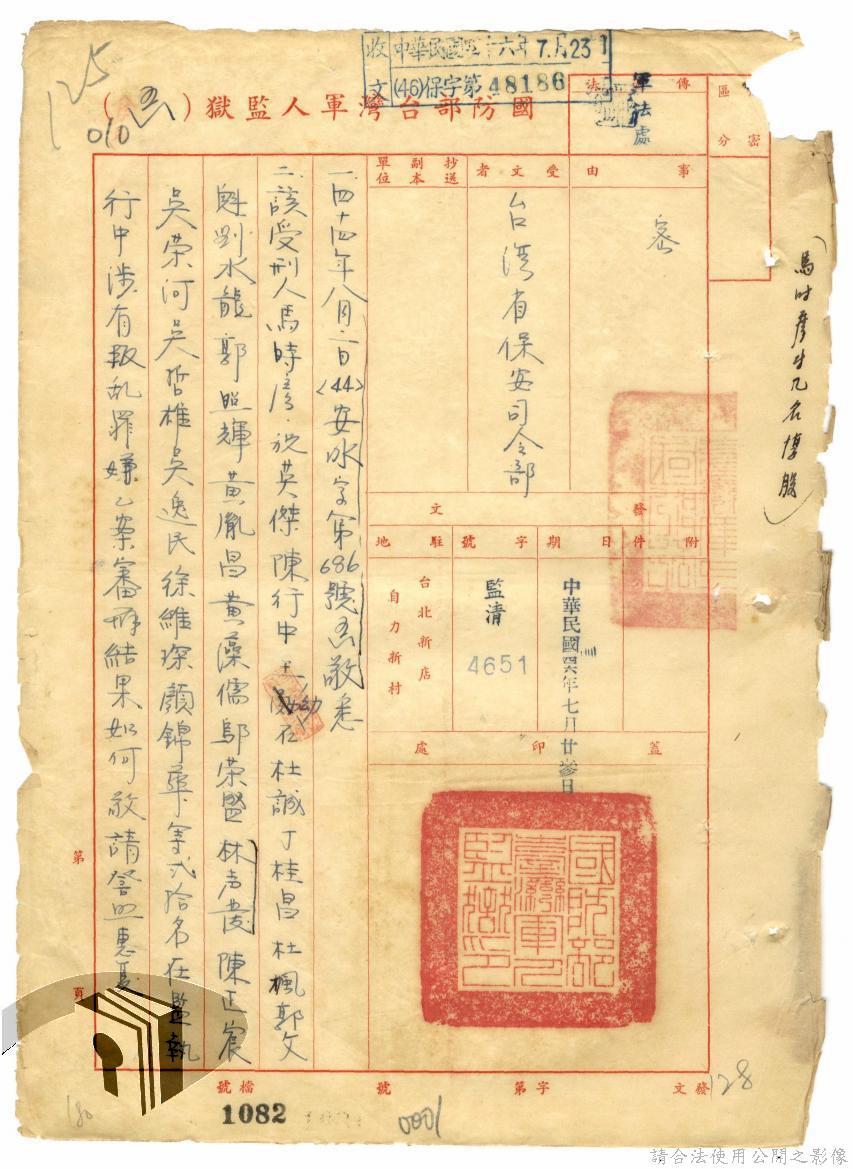 收文 中華民國四十六年7月23日
(46)保字第48186
125
010
國防部台灣軍人監獄（函）
軍法處
傳
區分
密
事由
密
受文者
台湾省保安司令部
抄送副本單位
發文
附件
日期
中華民國四六年七月廿參日
字號
監清
4651
駐地
台北新店
自力新村
蓋印處
國防部臺灣軍人監獄印
一、四十四年八月二日(44)安水字第686號函敬悉
二、該受刑人馬時彥、祝英傑陳行中
幼石杜誠丁桂昌杜楓郭文
魁劉水龍郭照輝黃胤昌黃藻儒鄔榮盛林声發陳正宸
吳榮河吳哲雄吳逸民徐維琛顏錦華等弍拾名在監執
行中涉有叛乱罪嫌乙案審辦結果如何敬請詧照惠复
馬时彥等几名
第
頁
發文
字第
號
檔號
1082
0001
128
180
請合法使用公開之影像